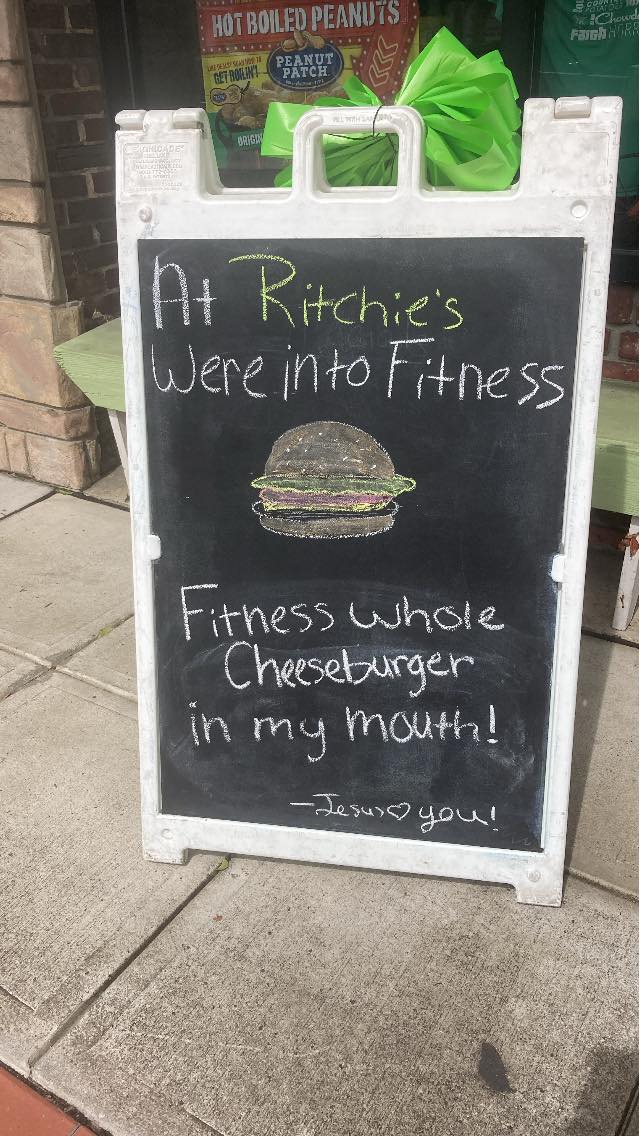 HOT BOILED PEANUTS
GET BOILIN'!
PEANUT
PATCH
At Ritchie's
Were into Fitness
Fitness whole
Cheeseburger
in my mouth!
-Jesus♡ you!